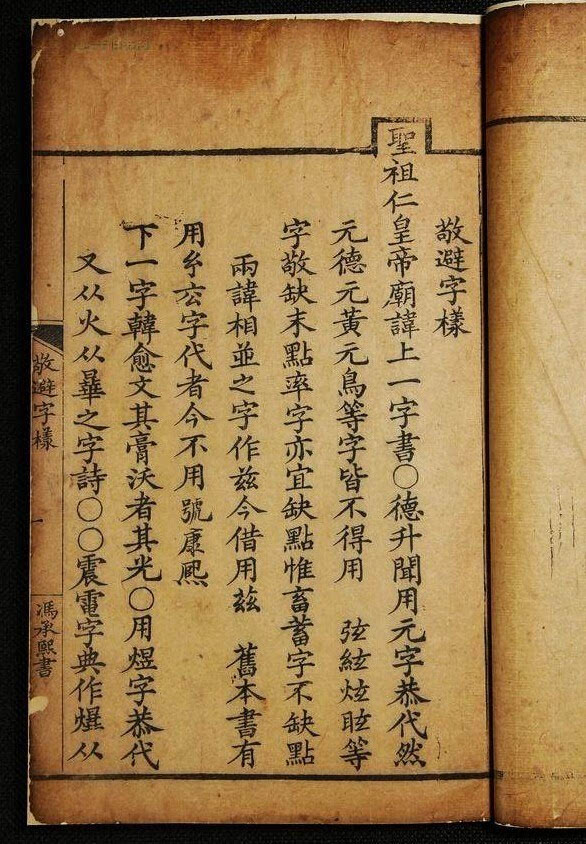 敬避字樣
聖祖仁皇帝廟諱上一字書〇德升聞用元字恭代然
元德元黃元鳥等字皆不得用　弦絃炫眩等
字敬缺末點率字亦宜缺點惟畜蓄字不缺點
兩諱相並之字作兹今借用茲　舊本書有
用字代者今不用號康熙
下一字韓愈文其膏沃者其光〇用煜字恭代
又从火从曅之字詩〇〇震電字典作爗从
敬避字樣
一
馮承熙書